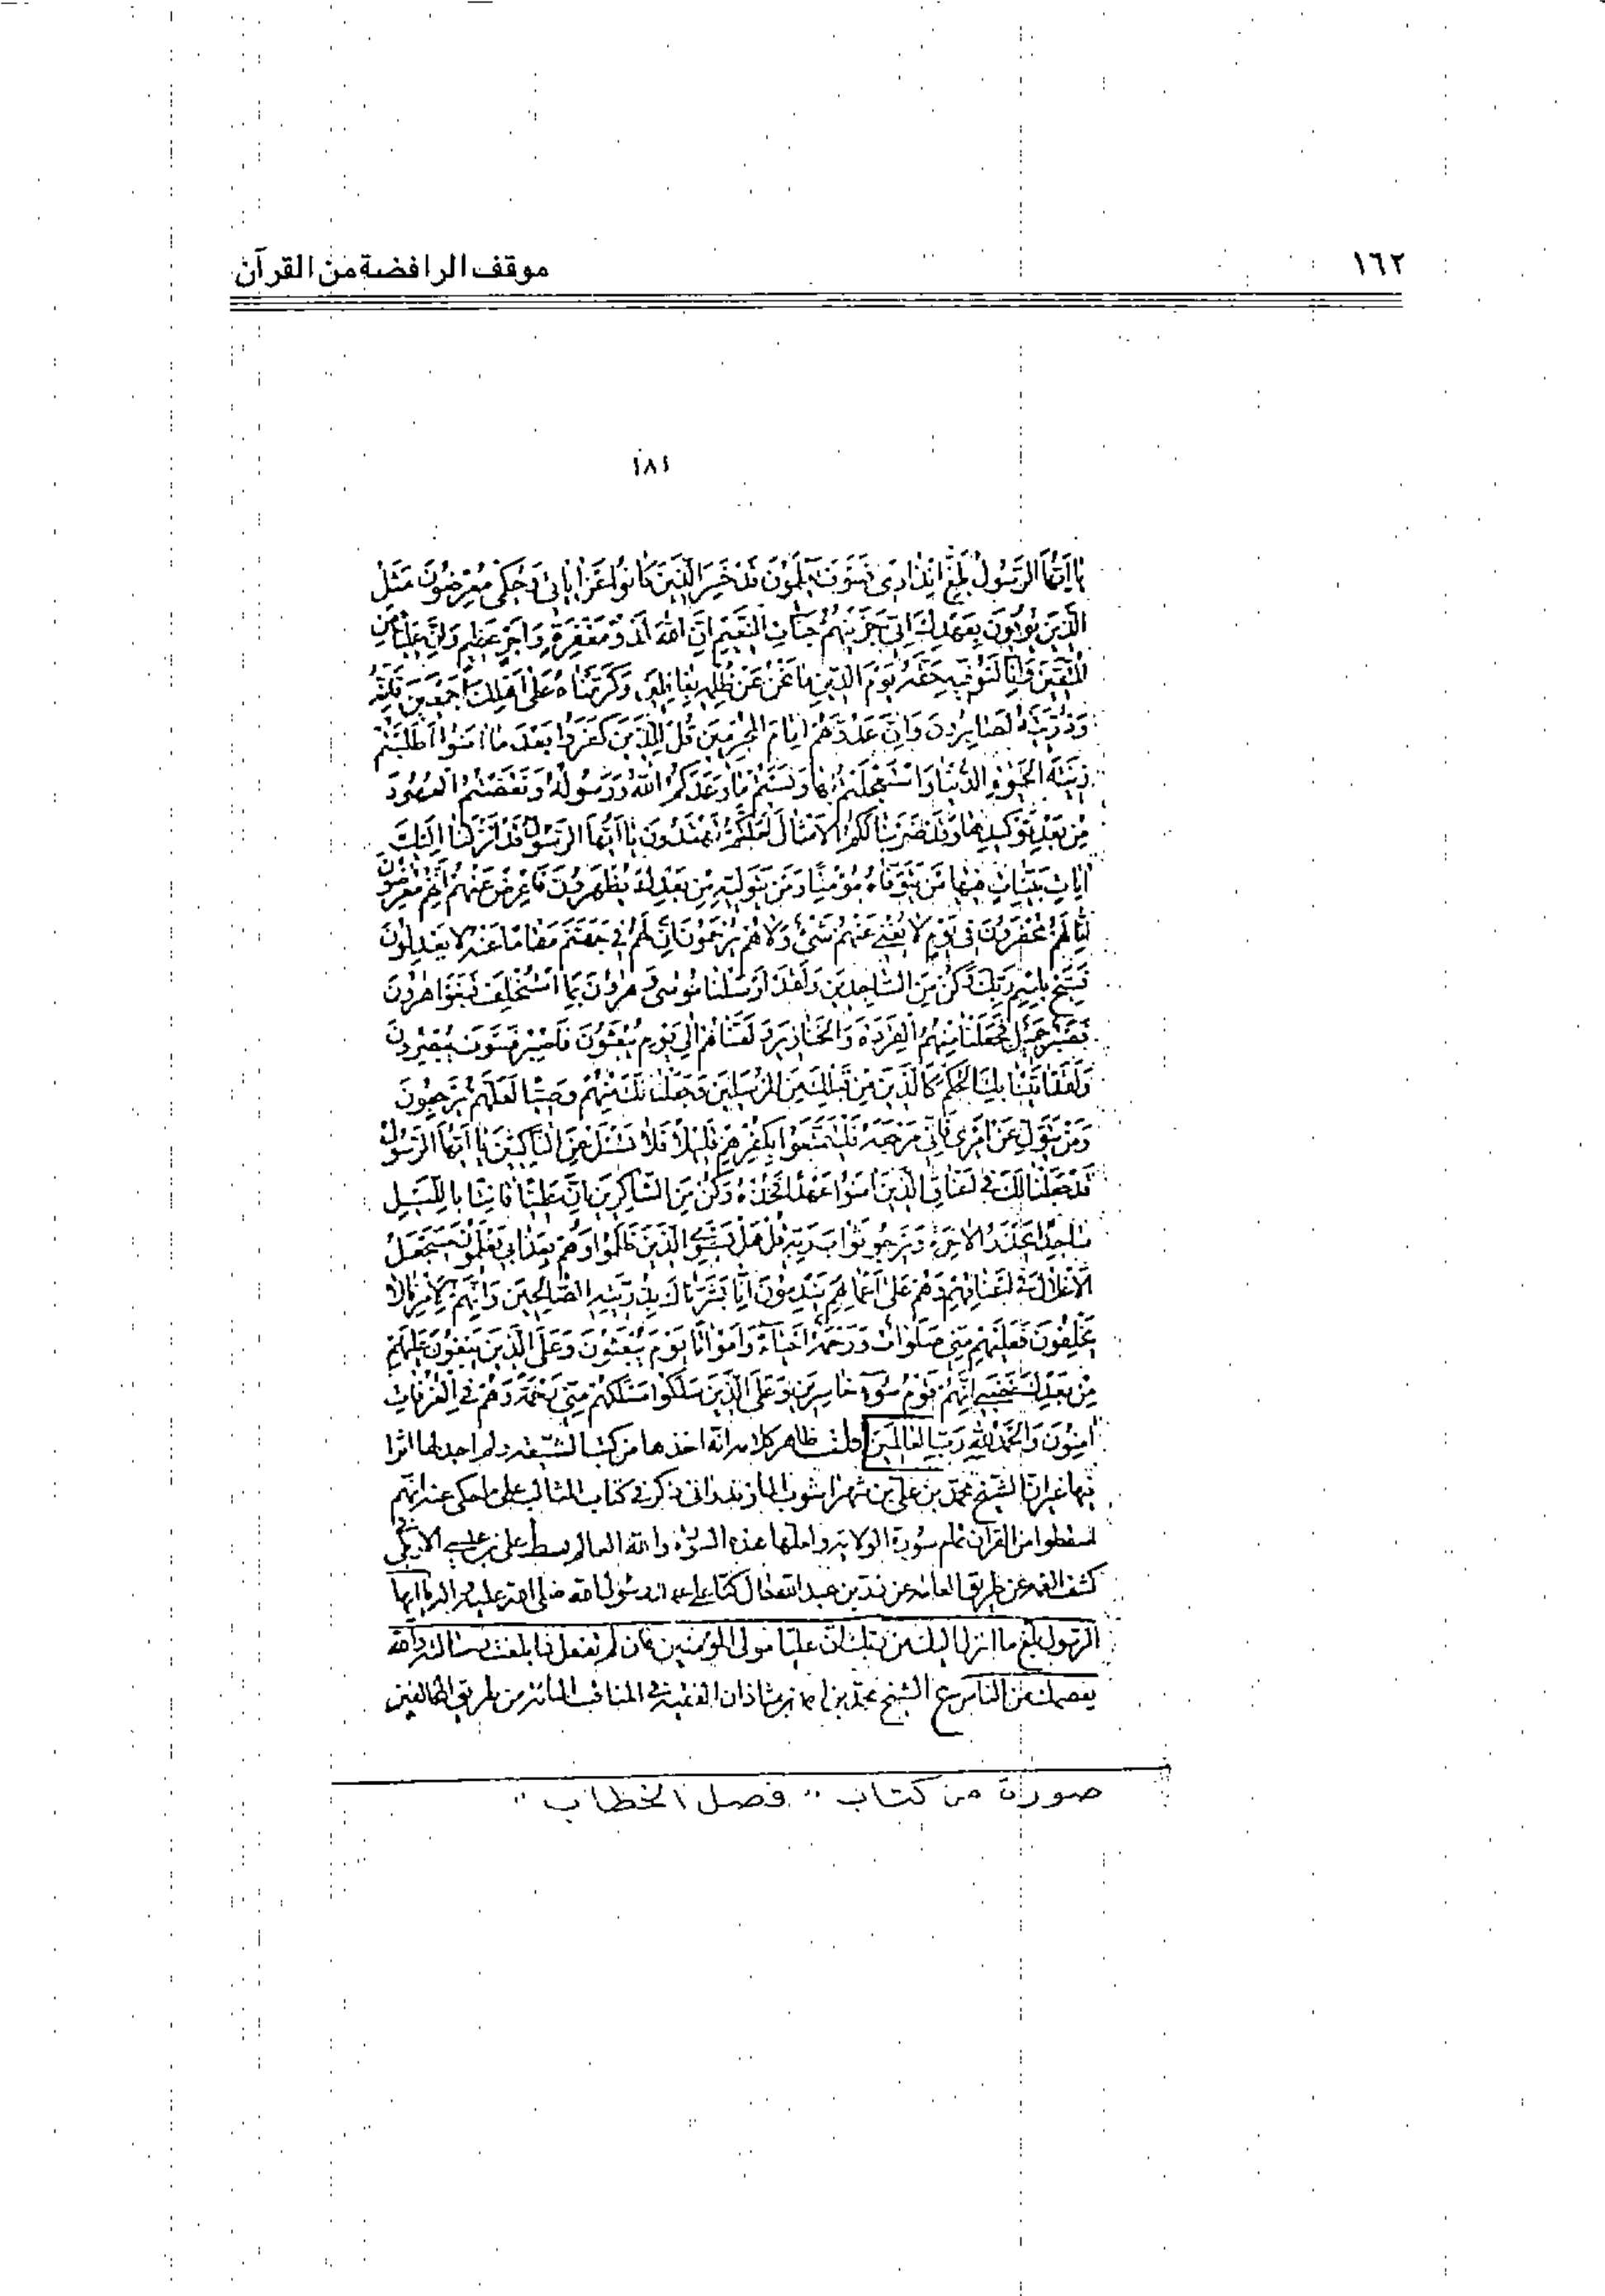 ١٦٢
موقف الرافضة من القرآن
١٨١
يَا أَيُّهَا الرَّسُولُ بَلِّغْ إِنْذَارِي فَسَوْفَ يَعْلَمُونَ قَدْ خَسِرَ الَّذِينَ كَانُوا عَنْ اٰيَاتِي وَحُكْمِي مُعْرِضُونَ مَثَلُ
الَّذِينَ يُوفُونَ بِعَهْدِكَ اِنِّي جَزَيْتُهُمْ جَنَّاتِ النَّعِيمِ اِنَّ اللهَ لَذُو مَغْفِرَةٍ وَاَجْرٍ عَظِيمٍ وَاِنَّ عَلِيًّا مِنَ
الْمُتَّقِينَ وَاِنَّا لَنُوَفِّيهِ حَقَّهُ يَوْمَ الدِّينِ مَا نَحْنُ عَنْ ظُلْمِهِ بِغَافِلِينَ وَكَرَّمْنَاهُ عَلَى اَهْلِكَ اَجْمَعِينَ فَاِنَّهُ
وَذُرِّيَّتَهُ لَصَابِرُونَ وَاِنَّ عَدُوَّهُمْ اِمَامُ الْمُجْرِمِينَ قُلْ لِلَّذِينَ كَفَرُوا بَعْدَ مَا اٰمَنُوا اَطَلَبْتُمْ
زِينَةَ الْحَيٰوةِ الدُّنْيَا وَاسْتَعْجَلْتُمْ بِهَا وَنَسِيتُمْ مَا وَعَدَكُمُ اللهُ وَرَسُولُهُ وَنَقَضْتُمُ الْعُهُودَ
مِنْ بَعْدِ تَوْكِيدِهَا وَقَدْ ضَرَبْنَا لَكُمُ الْاَمْثَالَ لَعَلَّكُمْ تَهْتَدُونَ يَا اَيُّهَا الرَّسُولُ قَدْ اَنْزَلْنَا اِلَيْكَ
اٰيَاتٍ بَيِّنَاتٍ فِيهَا مَنْ يَتَوَفَّاهُ مُؤْمِنًا وَمَنْ يَتَوَلَّيهِ مِنْ بَعْدِكَ يُظْهَرُونَ فَاَعْرِضْ عَنْهُمْ اِنَّهُمْ مُعْرِضُونَ
اِنَّا لَهُمْ مُحْضِرُونَ فِي يَوْمٍ لَا يُغْنِي عَنْهُمْ شَيْءٌ وَلَا هُمْ يُرْحَمُونَ اِنَّ لَهُمْ فِي جَهَنَّمَ مَقَامًا عَنْهُ لَا يَعْدِلُونَ
فَسَبِّحْ بِاسْمِ رَبِّكَ وَكُنْ مِنَ السَّاجِدِينَ وَلَقَدْ اَرْسَلْنَا مُوسَى وَهٰرُونَ بِمَا اسْتُخْلِفَ فَبَغَوْا هٰرُونَ
فَصَبْرٌ جَمِيلٌ فَجَعَلْنَا مِنْهُمُ الْقِرَدَةَ وَالْخَنَازِيرَ وَلَعَنَّاهُمْ اِلَى يَوْمِ يُبْعَثُونَ فَاصْبِرْ فَسَوْفَ يُبْصِرُونَ
وَلَقَدْ اٰتَيْنَا بِكَ الْحُكْمَ كَالَّذِينَ مِنْ قَبْلِكَ مِنَ الْمُرْسَلِينَ وَجَعَلْنَا لَكَ مِنْهُمْ وَصِيًّا لَعَلَّهُمْ يَرْجِعُونَ
وَمَنْ يَتَوَلَّ عَنْ اَمْرِي فَاِنِّي مَرْجِعُهُ فَلْيَتَمَتَّعُوا بِكُفْرِهِمْ قَلِيلًا فَلَا تَسْئَلْ عَنِ النَّاكِثِينَ يَا اَيُّهَا الرَّسُولُ
قَدْ جَعَلْنَا لَكَ فِي اَعْنَاقِ الَّذِينَ اٰمَنُوا عَهْدًا فَخُذْهُ وَكُنْ مِنَ الشَّاكِرِينَ اِنَّ عَلِيًّا قَانِتًا بِاللَّيْلِ
سَاجِدًا يَحْذَرُ الْاٰخِرَةَ وَيَرْجُو ثَوَابَ رَبِّهِ قُلْ هَلْ يَسْتَوِي الَّذِينَ ظَلَمُوا وَهُمْ بِعَذَابِي يَعْلَمُونَ سَيُجْعَلُ
الْاَغْلَالُ فِي اَعْنَاقِهِمْ وَهُمْ عَلَى اَعْمَالِهِمْ يَنْدَمُونَ اِنَّا بَشَّرْنَاكَ بِذُرِّيَّتِهِ الصَّالِحِينَ وَاِنَّهُمْ لِاَمْرِنَا لَا
يَخْلِفُونَ فَعَلَيْهِمْ مِنِّي صَلَوَاتٌ وَرَحْمَةٌ اَحْيَاءً وَاَمْوَاتًا يَوْمَ يُبْعَثُونَ وَعَلَى الَّذِينَ يَبْغُونَ عَلَيْهِمْ
مِنْ بَعْدِكَ غَضَبِي اِنَّهُمْ قَوْمُ سَوْءٍ خَاسِرِينَ وَعَلَى الَّذِينَ سَلَكُوا مَسْلَكَهُمْ مِنِّي رَحْمَةٌ وَهُمْ فِي الْغُرُفَاتِ
اٰمِنُونَ وَالْحَمْدُ لِلّٰهِ رَبِّ الْعَالَمِينَ قلت ظاهر كلامه انه اخذها من كتب الشيعة ولم اجد لها اثرا
فيها غير ان الشيخ محمد بن علي بن شهراشوب المازندراني ذكر في كتاب المثالب على ما حكى عنه انهم
اسقطوا من القران تمام سورة الولاية ولعلها هذه السورة والله العالم علي بن عيسى الاربلي في
كشف الغمة عن طريق العامة عن زر بن عبد الله قال كنا على عهد رسول الله صلى الله عليه واله يا ايها
الرسول بلغ ما انزل اليك من ربك ان عليا مولى المؤمنين فان لم تفعل فما بلغت رسالته والله
يعصمك من الناس الشيخ محمد بن احمد بن شاذان الفقيه في المناقب المائة من طريق المخالفين
صورة من كتاب " فصل الخطاب "